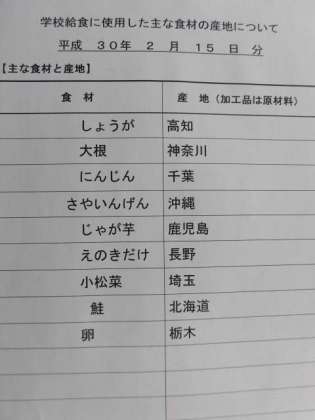 学校給食に使用した主な食材の産地について
平成 30年 2 月 15 日 分
【主な食材と産地】
食 材 産 地（加工品は原材料）
しょうが 高知
大根 神奈川
にんじん 千葉
さやいんげん 沖縄
じゃが芋 鹿児島
えのきだけ 長野
小松菜 埼玉
鮭 北海道
卵 栃木